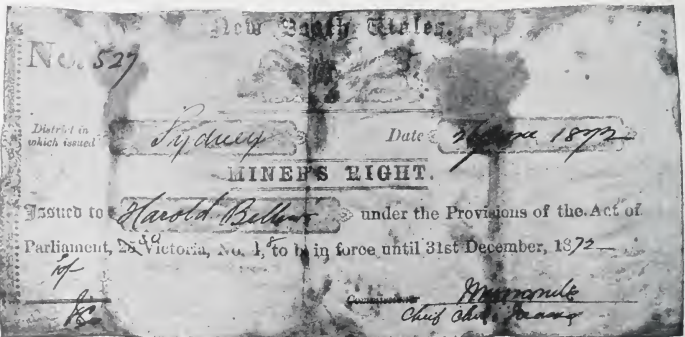 New South Wales.
No. 527
District in which issued Sydney Date June 1872
MINER'S RIGHT.
Issued to Harold under the Provisions of the Act of
Parliament, Victoria, No. 1, to be in force until 31st December, 1872
Commissioner